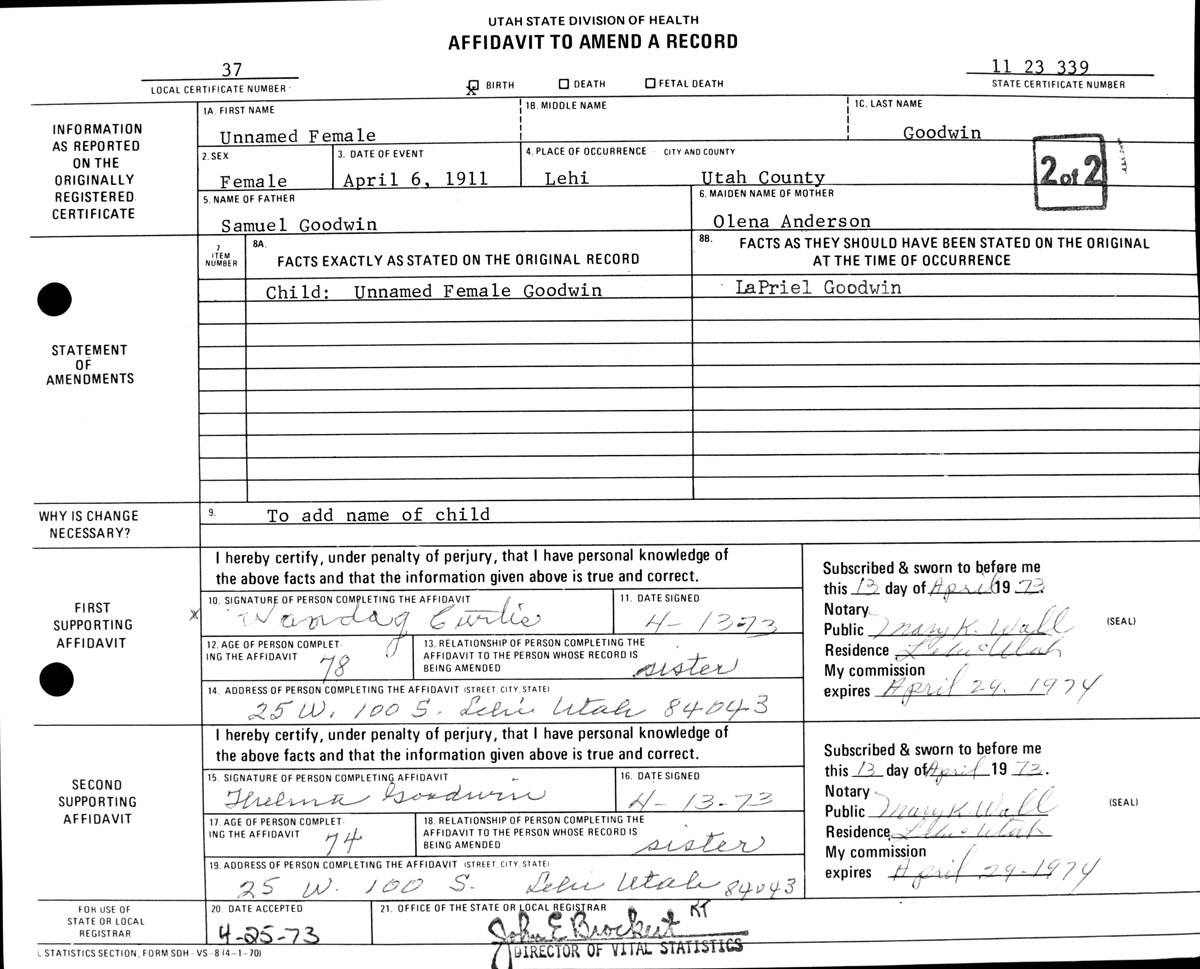 UTAH STATE DIVISION OF HEALTH
AFFIDAVIT TO AMEND A RECORD
37
LOCAL CERTIFICATE NUMBER
X BIRTH DEATH FETAL DEATH
11 23 339
STATE CERTIFICATE NUMBER
INFORMATION
AS REPORTED
ON THE
ORIGINALLY
REGISTERED
CERTIFICATE
1A. FIRST NAME
Unnamed Female
1B. MIDDLE NAME
1C. LAST NAME
Goodwin
2. SEX
Female
3. DATE OF EVENT
April 6, 1911
4. PLACE OF OCCURRENCE – CITY AND COUNTY
Lehi Utah County
2 of 2
5. NAME OF FATHER
Samuel Goodwin
6. MAIDEN NAME OF MOTHER
Olena Anderson
STATEMENT
OF
AMENDMENTS
7
ITEM
NUMBER
8A.
FACTS EXACTLY AS STATED ON THE ORIGINAL RECORD
8B. FACTS AS THEY SHOULD HAVE BEEN STATED ON THE ORIGINAL
AT THE TIME OF OCCURRENCE
Child: Unnamed Female Goodwin
LaPriel Goodwin
WHY IS CHANGE
NECESSARY?
9. To add name of child
FIRST
SUPPORTING
AFFIDAVIT
I hereby certify, under penalty of perjury, that I have personal knowledge of
the above facts and that the information given above is true and correct.
10. SIGNATURE OF PERSON COMPLETING THE AFFIDAVIT
x Wanda G Curtis
11. DATE SIGNED
4-13-73
12. AGE OF PERSON COMPLET-
ING THE AFFIDAVIT 78
13. RELATIONSHIP OF PERSON COMPLETING THE
AFFIDAVIT TO THE PERSON WHOSE RECORD IS
BEING AMENDED sister
14. ADDRESS OF PERSON COMPLETING THE AFFIDAVIT (STREET, CITY, STATE)
25 W. 100 S. Lehi Utah 84043
Subscribed & sworn to before me
this 13 day of April 19 73.
Notary
Public Mary K. Wall
(SEAL)
Residence Lehi Utah
My commission
expires April 29. 1974
SECOND
SUPPORTING
AFFIDAVIT
I hereby certify, under penalty of perjury, that I have personal knowledge of
the above facts and that the information given above is true and correct.
15. SIGNATURE OF PERSON COMPLETING AFFIDAVIT
Thelma Goodwin
16. DATE SIGNED
4-13-73
17. AGE OF PERSON COMPLET-
ING THE AFFIDAVIT 74
18. RELATIONSHIP OF PERSON COMPLETING THE
AFFIDAVIT TO THE PERSON WHOSE RECORD IS
BEING AMENDED sister
19. ADDRESS OF PERSON COMPLETING THE AFFIDAVIT (STREET, CITY, STATE)
25 W. 100 S. Lehi Utah 84043
Subscribed & sworn to before me
this 13 day of April 19 73.
Notary
Public Mary K Wall
(SEAL)
Residence Lehi Utah
My commission
expires April 29-1974
FOR USE OF
STATE OR LOCAL
REGISTRAR
20. DATE ACCEPTED
4-25-73
21. OFFICE OF THE STATE OR LOCAL REGISTRAR
John E Brockert
DIRECTOR OF VITAL STATISTICS
L STATISTICS SECTION, FORM SDH-VS-8 (4-1-70)